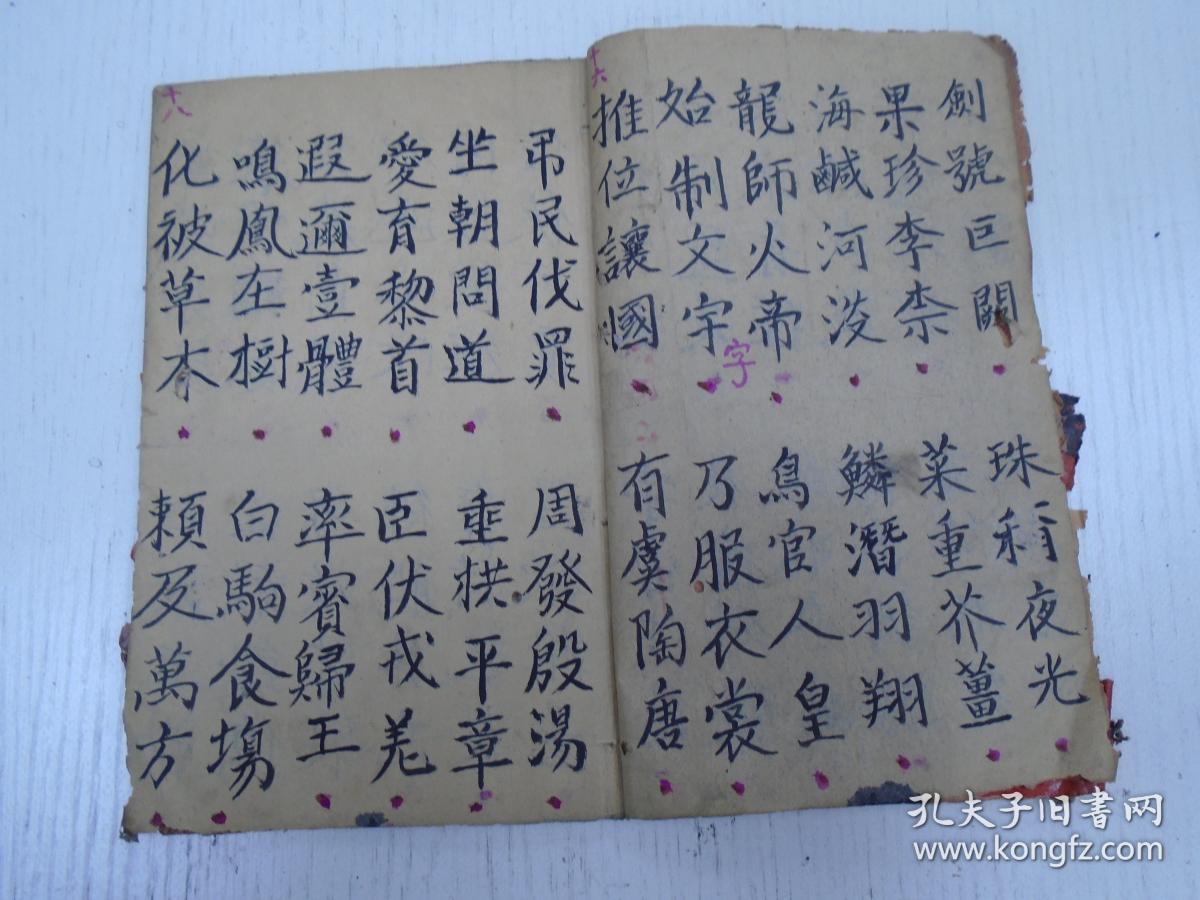 十六
劍號巨闕 珠稱夜光
果珍李柰 菜重芥薑
海鹹河淡 鱗潛羽翔
龍師火帝 鳥官人皇
始制文宇 乃服衣裳
字
推位讓國 有虞陶唐
十八
弔民伐罪 周發殷湯
坐朝問道 垂栱平章
愛育黎首 臣伏戎羌
遐邇壹體 率賓歸王
鳴鳳在樹 白駒食場
化被草木 賴及萬方
孔夫子旧书网
www.kongfz.com